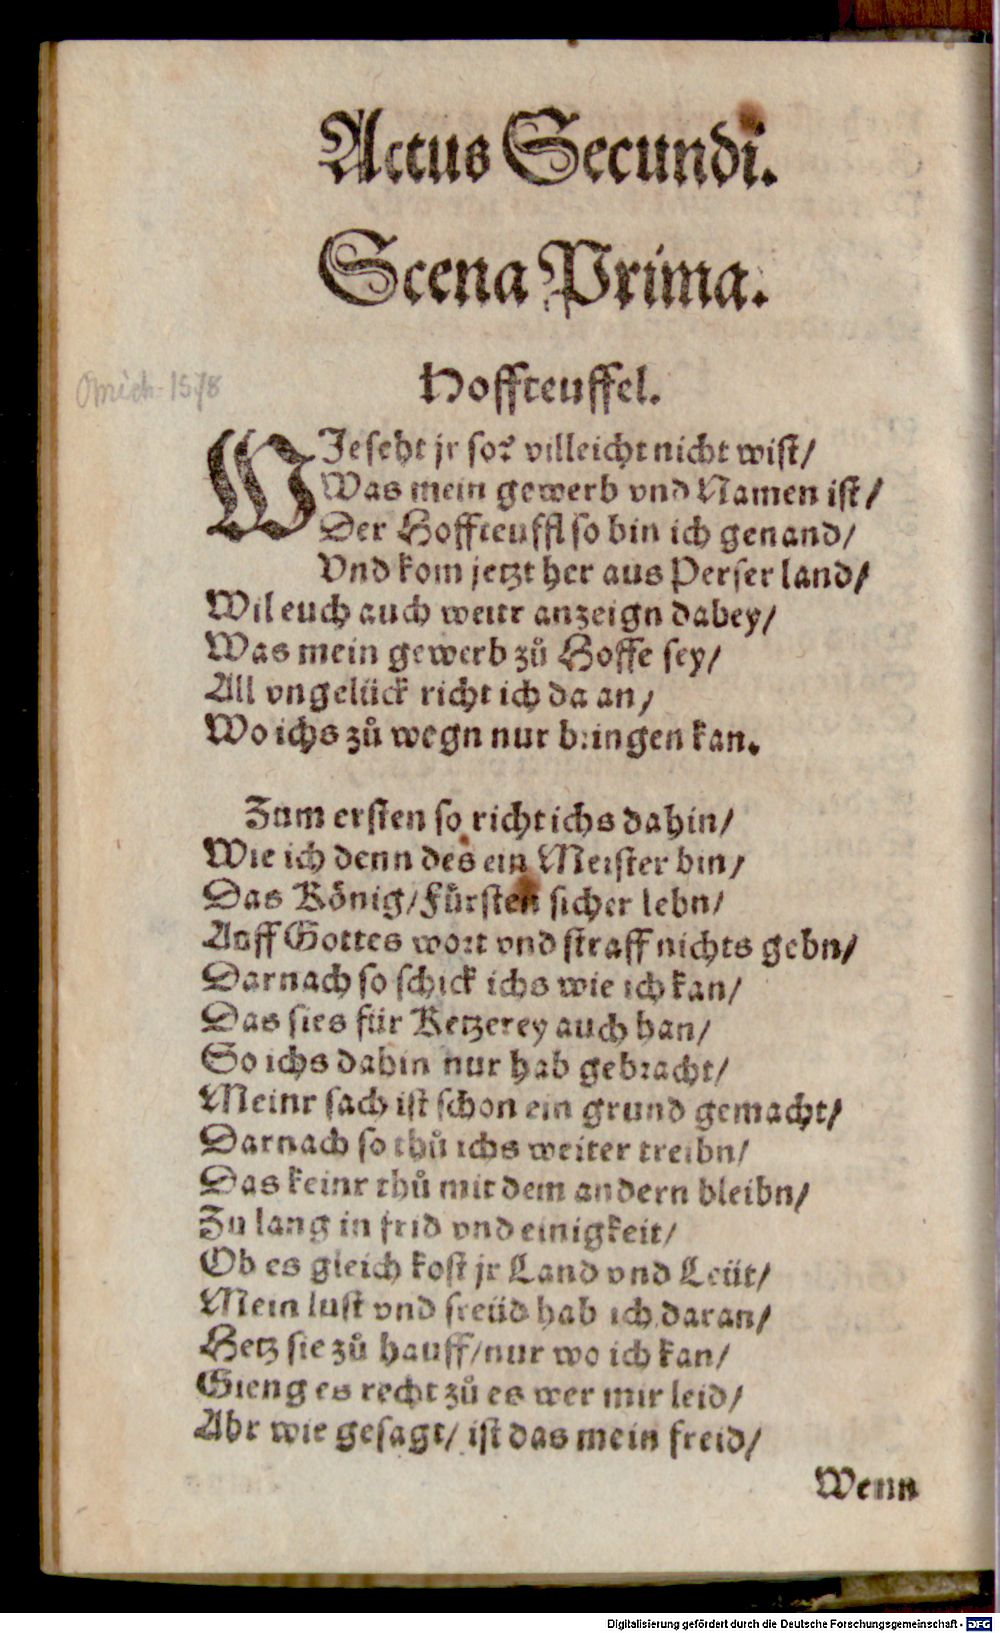 Actus Secundi.
Scena Prima.
Hoffteuffel.
WJe seht jr so? villeicht nicht wist/
Was mein gewerb vnd Namen ist/
Der Hoffteuffl so bin ich genand/
Vnd kom jetzt her aus Perser land/
Wil euch auch weitr anzeign dabey/
Was mein gewerb zů Hoffe sey/
All vngelück richt ich da an/
Wo ichs zů wegn nur bringen kan.
Zum ersten so richt ichs dahin/
Wie ich denn des ein Meister bin/
Das König/ Fürsten sicher lebn/
Auff Gottes wort vnd straff nichts gebn/
Darnach so schick ichs wie ich kan/
Das sies für Ketzerey auch han/
So ichs dahin nur hab gebracht/
Meinr sach ist schon ein grund gemacht/
Darnach so thů ichs weiter treibn/
Das keinr thů mit dem andern bleibn/
Zu lang in frid vnd einigkeit/
Ob es gleich kost jr Land vnd Leüt/
Mein lust vnd freüd hab ich daran/
Hetz sie zů hauff/ nur wo ich kan/
Gieng es recht zů es wer mir leid/
Abr wie gesagt/ ist das mein freid/
Wenn
1578
Digitalisierung gefördert durch die Deutsche Forschungsgemeinschaft - DFG